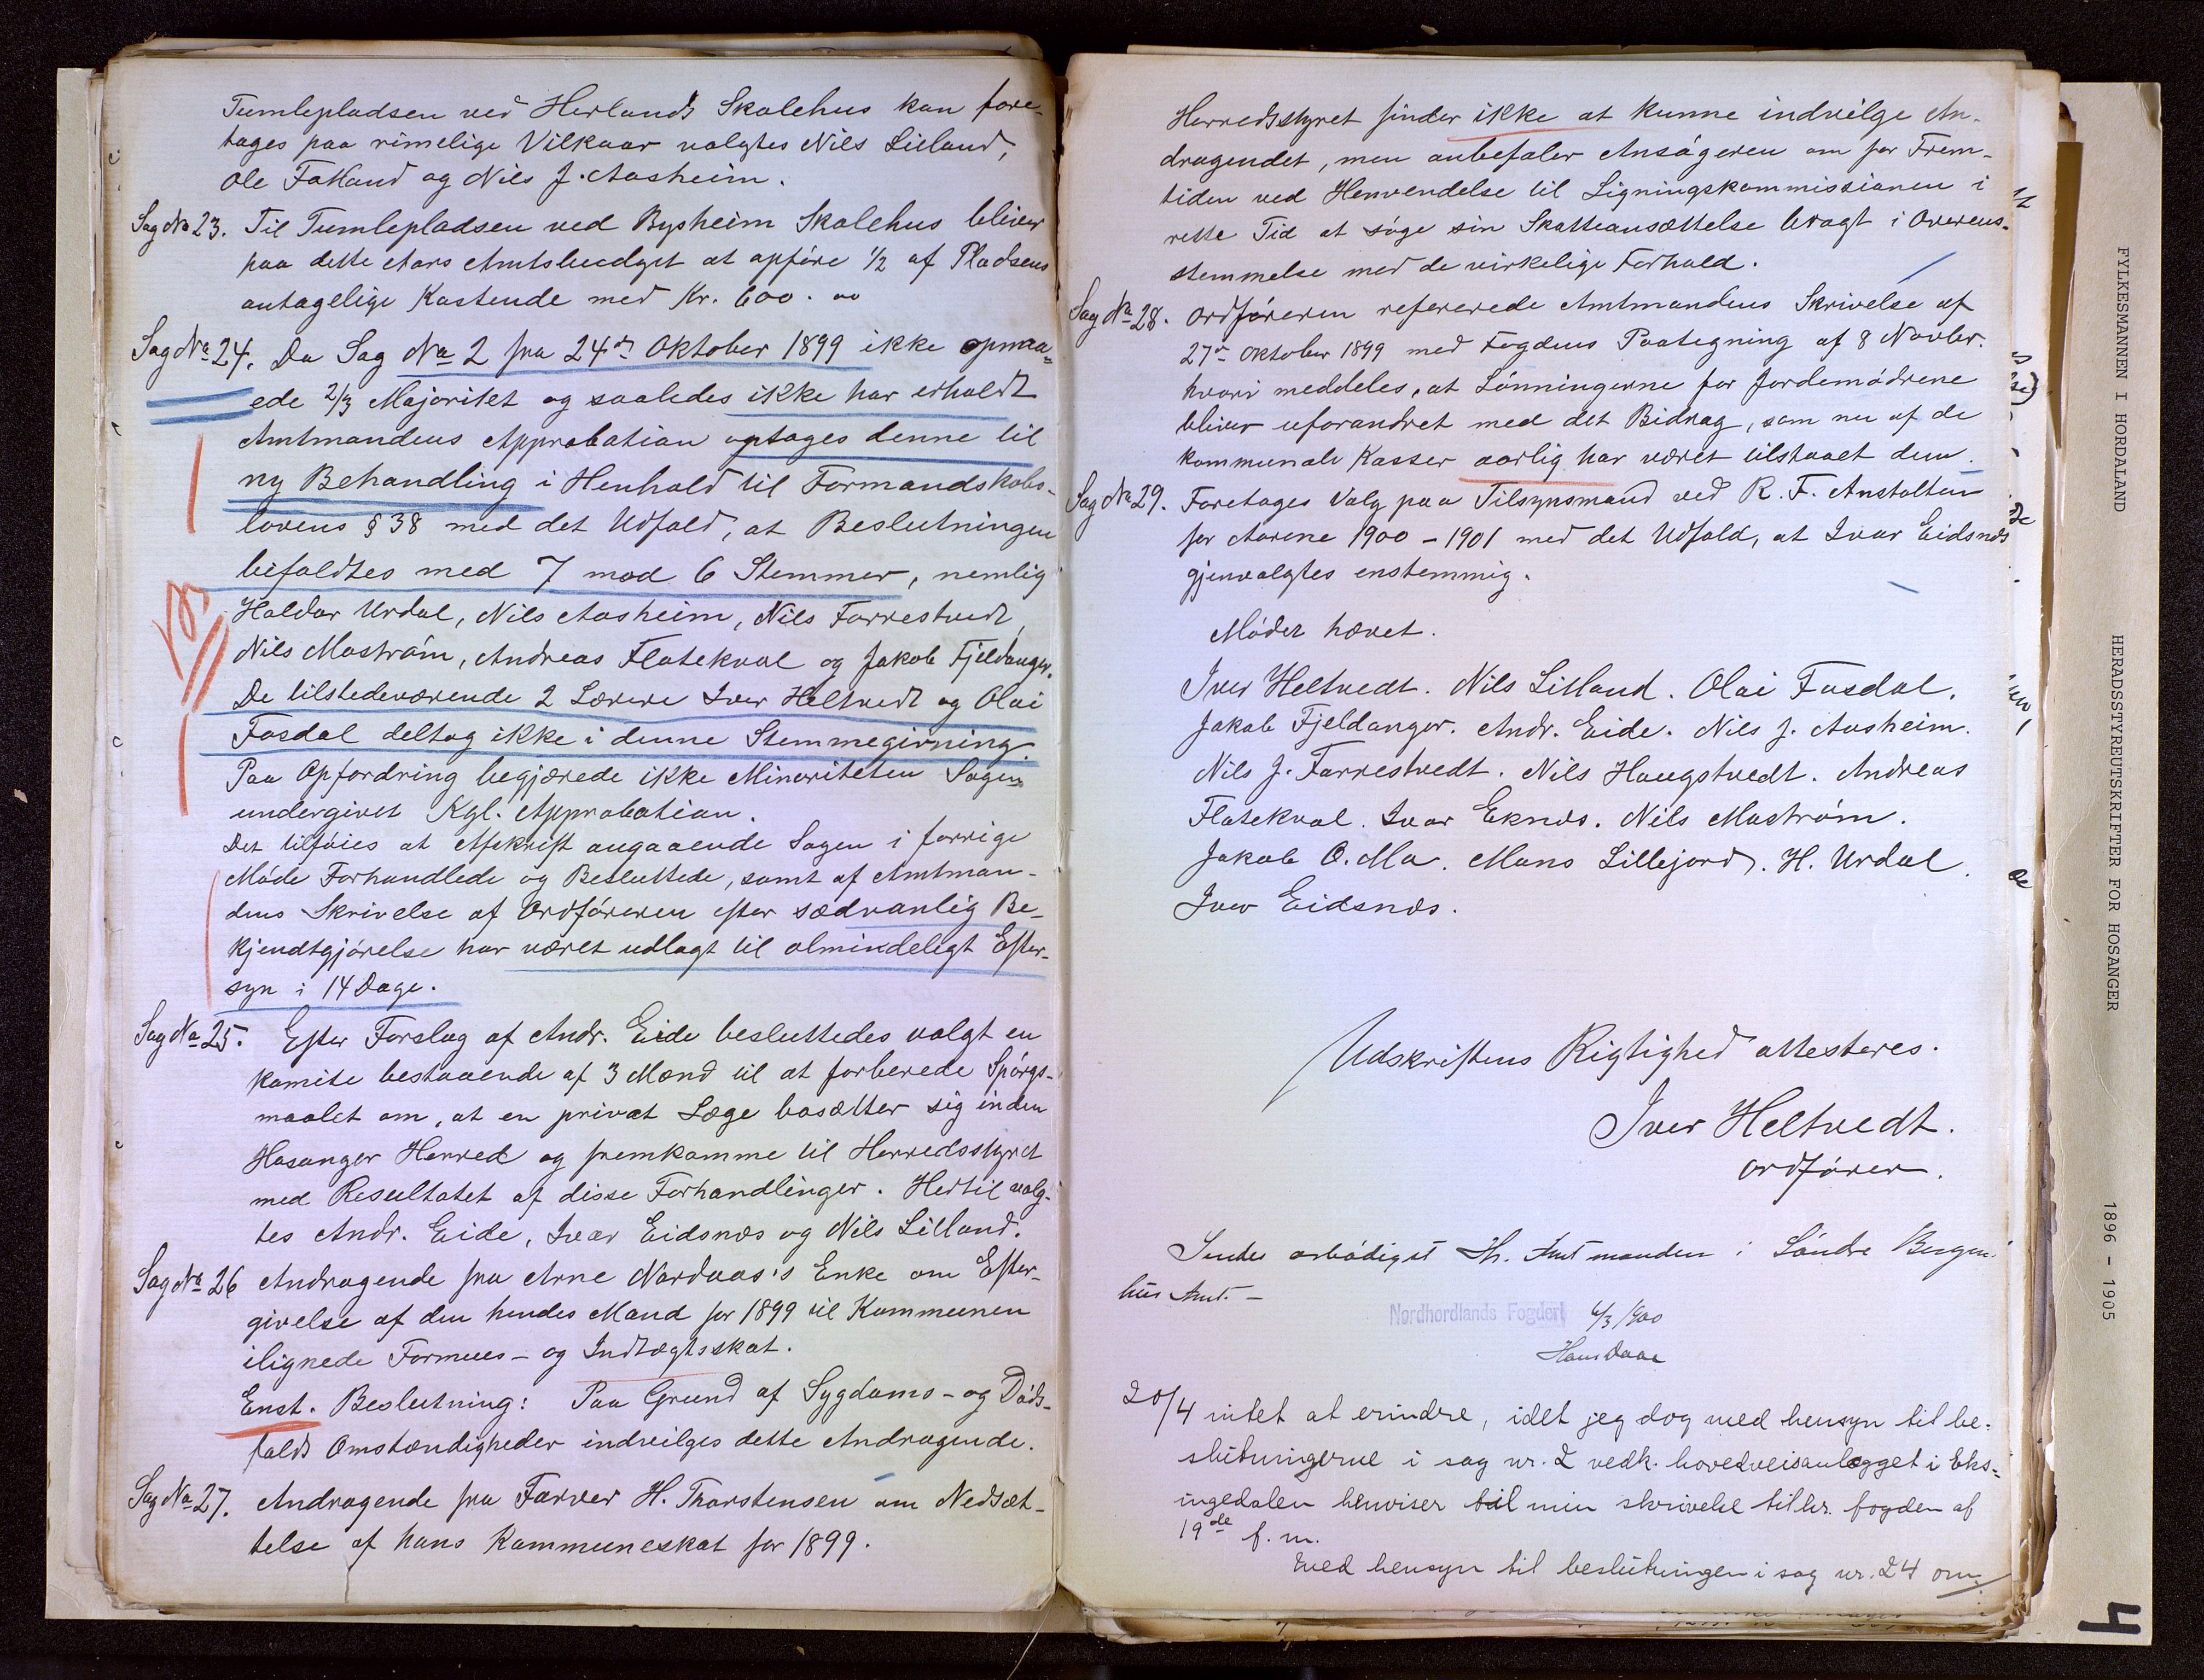 Tumlepladsen ved Herlands Skolehus kan fore-
tages paa rimelige Vilkaar valgtes Nils Litland,
Ole Fotland og Nils J. Aasheim.
Sag No 23. Til Tumlepladsen ved Bysheim Skolehus bliver
paa dette Aars Amtsbudget at opføre 1/2 af Pladsens
antagelige Kostende med Kr. 600. 00
Sag No 24. Da Sag No 2 fra 24de Oktober 1899 ikke opnaa-
ede 2/3 Majoritet og saaledes ikke har erholdt
Amtmandens Approbation optages denne til
ny Behandling i Henhold til Formandskabs-
lovens § 38 med det Udfald, at Beslutningen
bifaldtes med 7 mod 6 Stemmer, nemlig
Haldor Urdal, Nils Aasheim, Nils Farrestvedt,
Nils Mostrøm, Andreas Flatekval og Jakob Fjeldanger.
De tilstedeværende 2 Lærere Iver Heltvedt og Olai
Fosdal deltog ikke i denne Stemmegivning
Paa Opfordring begjærede ikke Minoriteten Sagen
undergivet Kgl. Approbation.
Det tilføies at Afskrift angaaende Sagen i forrige
Møde Forhandlede og Besluttede, samt af Amtman-
dens Skrivelse af Ordføreren efter sædvanlig Be-
kjendtgjørelse har været udlagt til almindeligt Efter-
syn i 14 Dage.
Sag No 25. Efter Forslag af Andr. Eide besluttedes valgt en
Komite bestaaende af 3 Mænd til at forberede Spørgs-
maalet om, at en privat Læge bosætter sig inden
Hosanger Herred og fremkomme til Herredsstyret
med Resultatet af disse Forhandlinger. Hertil valg-
tes Andr. Eide, Ivar Eidsnæs og Nils Litland.
Sag No 26 Andragende fra Arne Nordaas's Enke om Efter-
givelse af den hendes Mand for 1899 til Kommunen
ilignede Formues- og Indtægtsskat.
Enst. Beslutning: Paa Grund af Sygdoms- og Døds-
falds Omstændigheder indvilges dette Andragende.
Sag No 27. Andragende fra Farver H. Thorstensen om Nedsæt-
telse af hans Kommuneskat for 1899.
Herredsstyret finder ikke at kunne indvilge An-
dragendet, men anbefaler Ansøgeren om for Frem-
tiden ved Henvendelse til Ligningskommissionen i
rette Tid at søge sin Skatteansættelse bragt i Overens-
stemmelse med de virkelige Forhold.
Sag No 28. Ordføreren refererede Amtmandens Skrivelse af
27de Oktober 1899 med Fogdens Paategning af 8 Novbr.
hvori meddeles, at Lønningerne for Jordemødrene
bliver uforandret med det Bidrag, som nu af de
kommunale Kasser aarlig har været tilstaaet dem.
Sag No 29. Foretages Valg paa Tilsynsmand ved R. F. Anstalten
for Aarene 1900 - 1901 med det Udfald, at Ivar Eidsnæs
gjenvalgtes enstemmig.
Mødet hævet.
Iver Heltvedt. Nils Litland. Olai Fosdal.
Jakob Fjeldanger. Andr. Eide. Nils J. Aasheim.
Nils J. Farrestvedt. Nils Haugstvedt. Andreas
Flatekval. Ivar Eknæs. Nils Mostrøm.
Jakob O. Mo. Mons Lillejord. H. Urdal.
Iver Eidsnæs.
Udskriftens Rigtighed attesteres.
Iver Heltvedt.
Ordfører.
Sendes ærbødigst Hr. Amtmanden i Søndre Bergen-
hus Amt. -
Nordhordlands Fogderi 6/3 1900
Hans Daae
20/4 intet at erindre, idet jeg dog med hensyn til be-
slutningerne i sag nr. 2 vedk. hovedveisanlægget i Eks-
ingedalen henviser til min skrivelse til hr. fogden af
19de f. m.
Med hensyn til beslutningen i sag nr. 24 om
FYLKESMANNEN I HORDALAND
HERADSSTYREUTSKRIFTER FOR HOSANGER
1896 - 1905
4